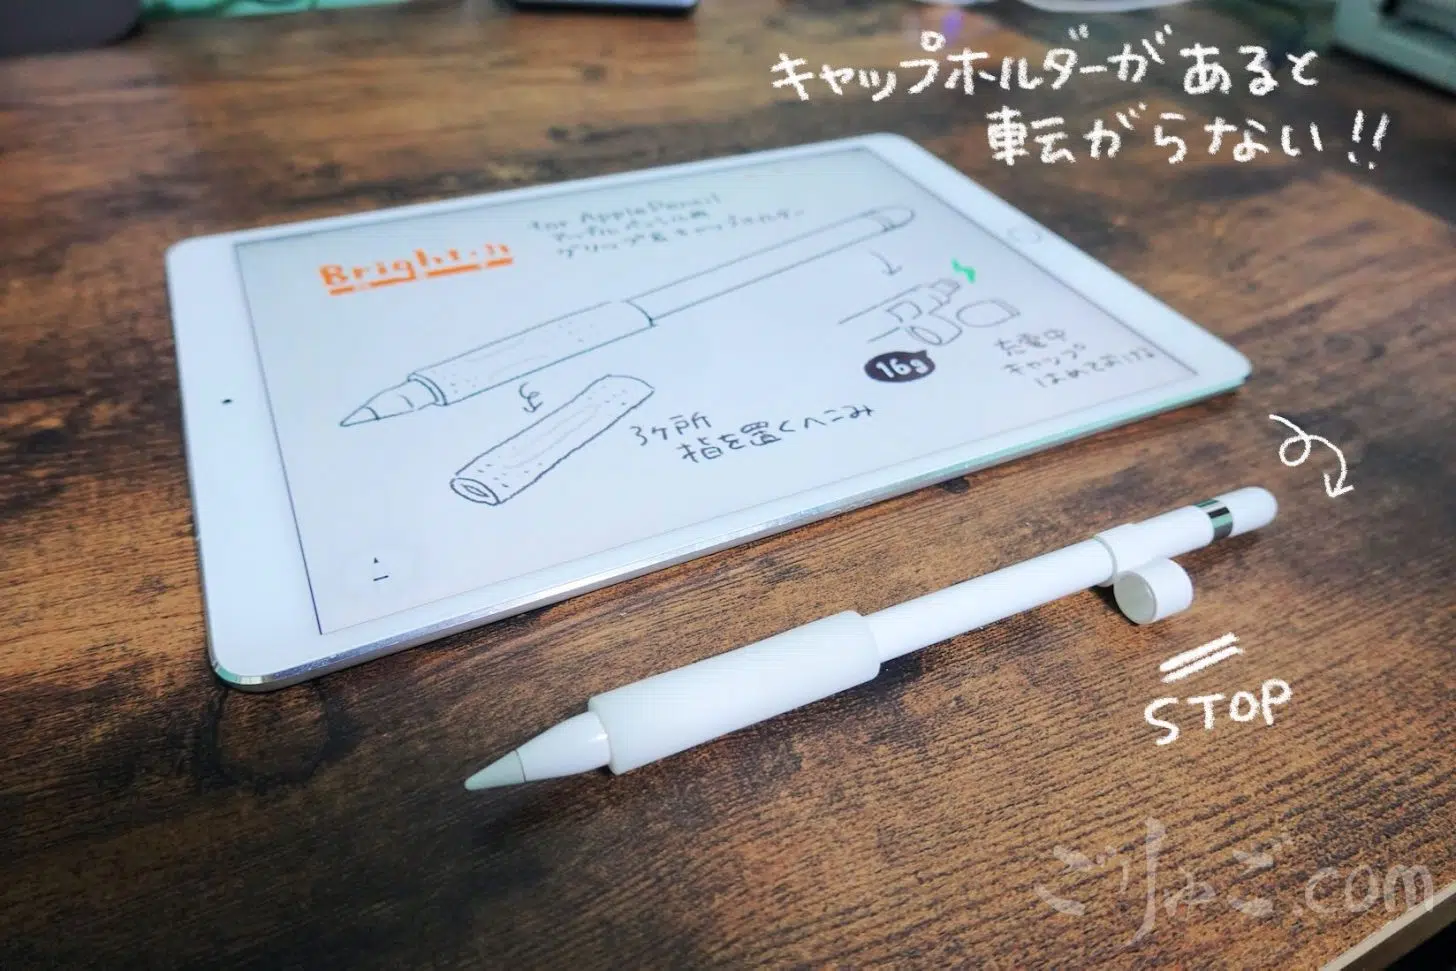 キャップホルダーがあると
転がらない!!
Bright.n
for ApplePencil
アップルペンシル用
グリップ&キャップホルダー
16g
充電中
キャップ
はめておける
3ケ所
指を置くへこみ
STOP
ごりゅご.com